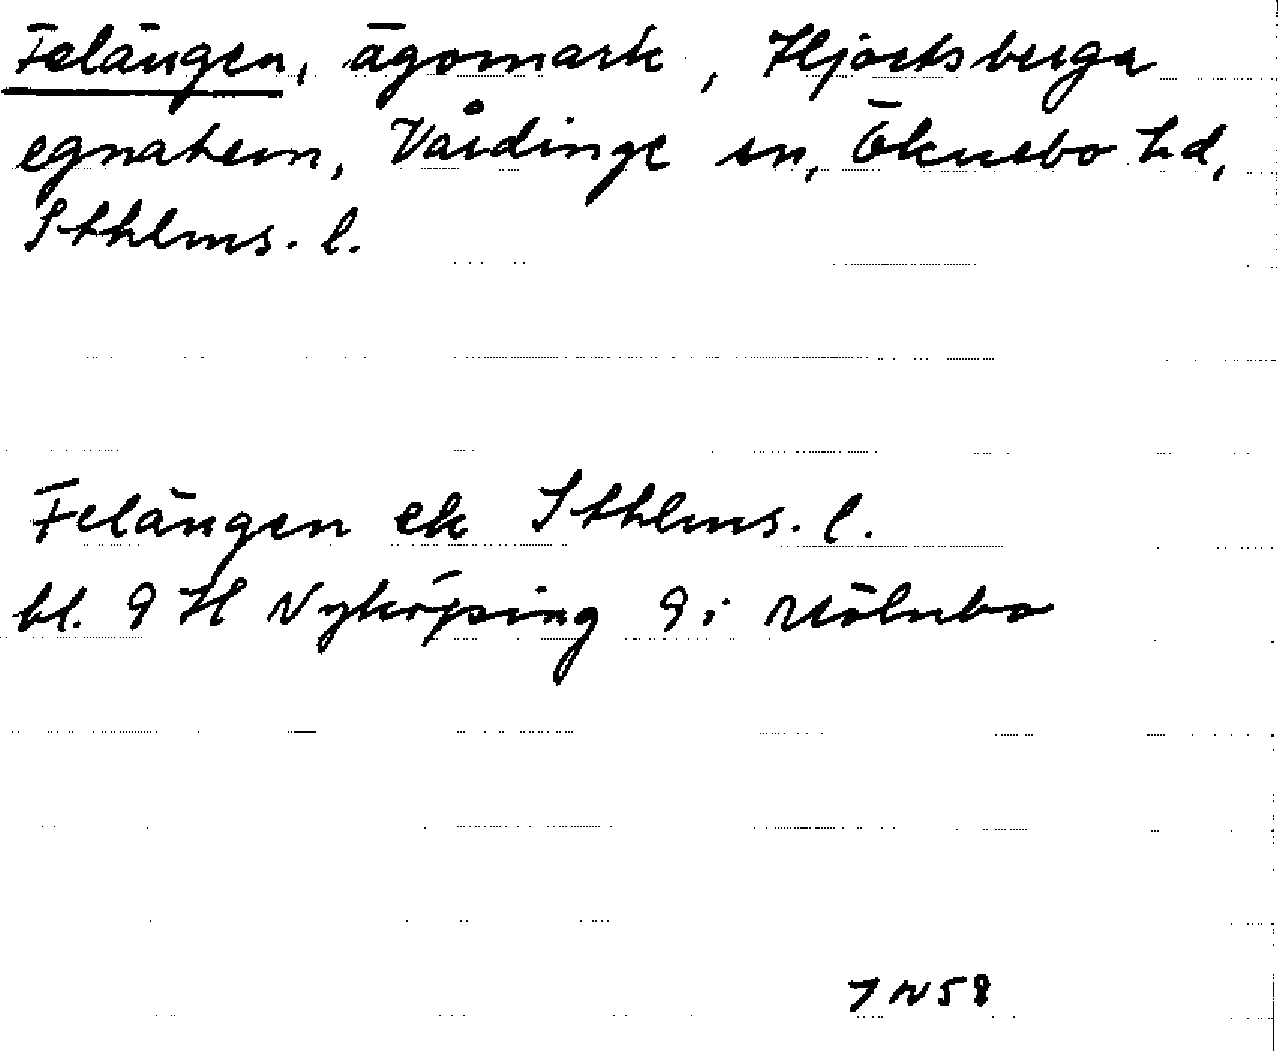 Felängen, ägomark, Hjortsberga
egnahem, Vårdinge sn, Öknebo hd,
Sthlms. l.
Felängen ek Sthlms. l.
bl. 9 H Nyköping 9 i Mölnbo
7 N 58